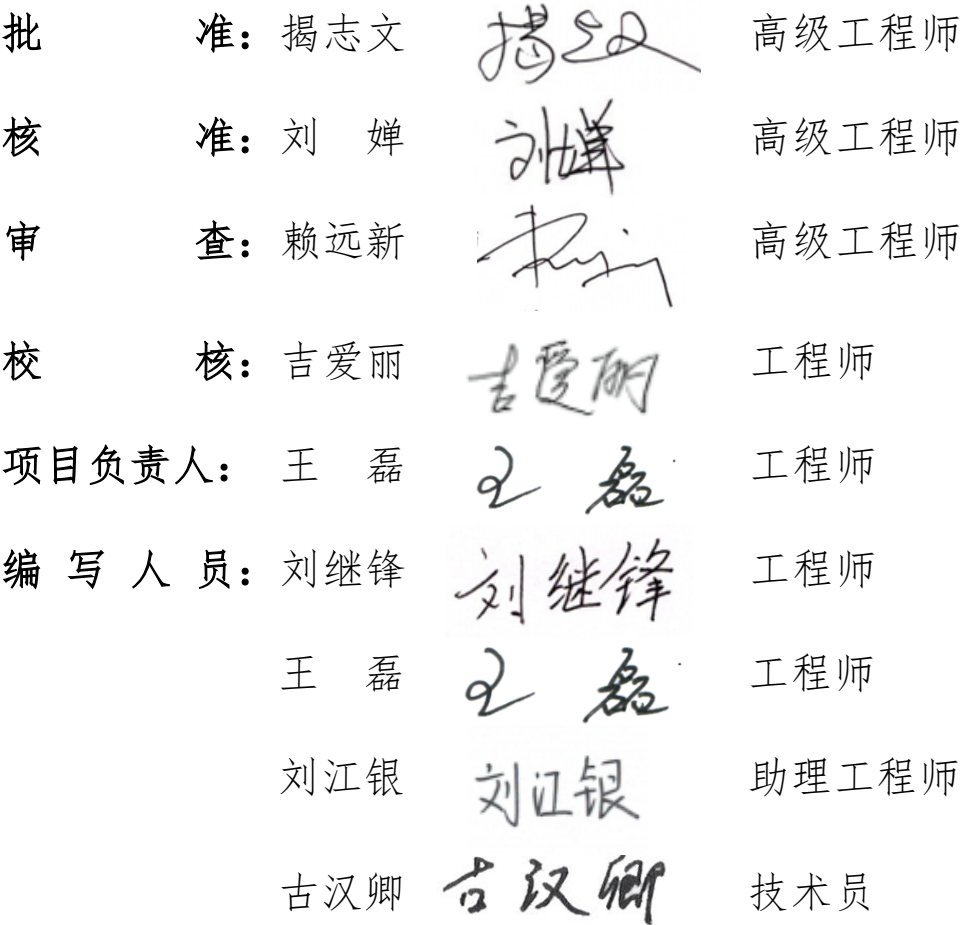 批 准：揭志文 揭志文 高级工程师
核 准：刘 婵 刘婵 高级工程师
审 查：赖远新 高级工程师
校 核：吉爱丽 吉爱丽 工程师
项目负责人： 王 磊 王 磊 工程师
编 写 人 员：刘继锋 刘继锋 工程师
王 磊 王 磊 工程师
刘江银 刘江银 助理工程师
古汉卿 古汉卿 技术员